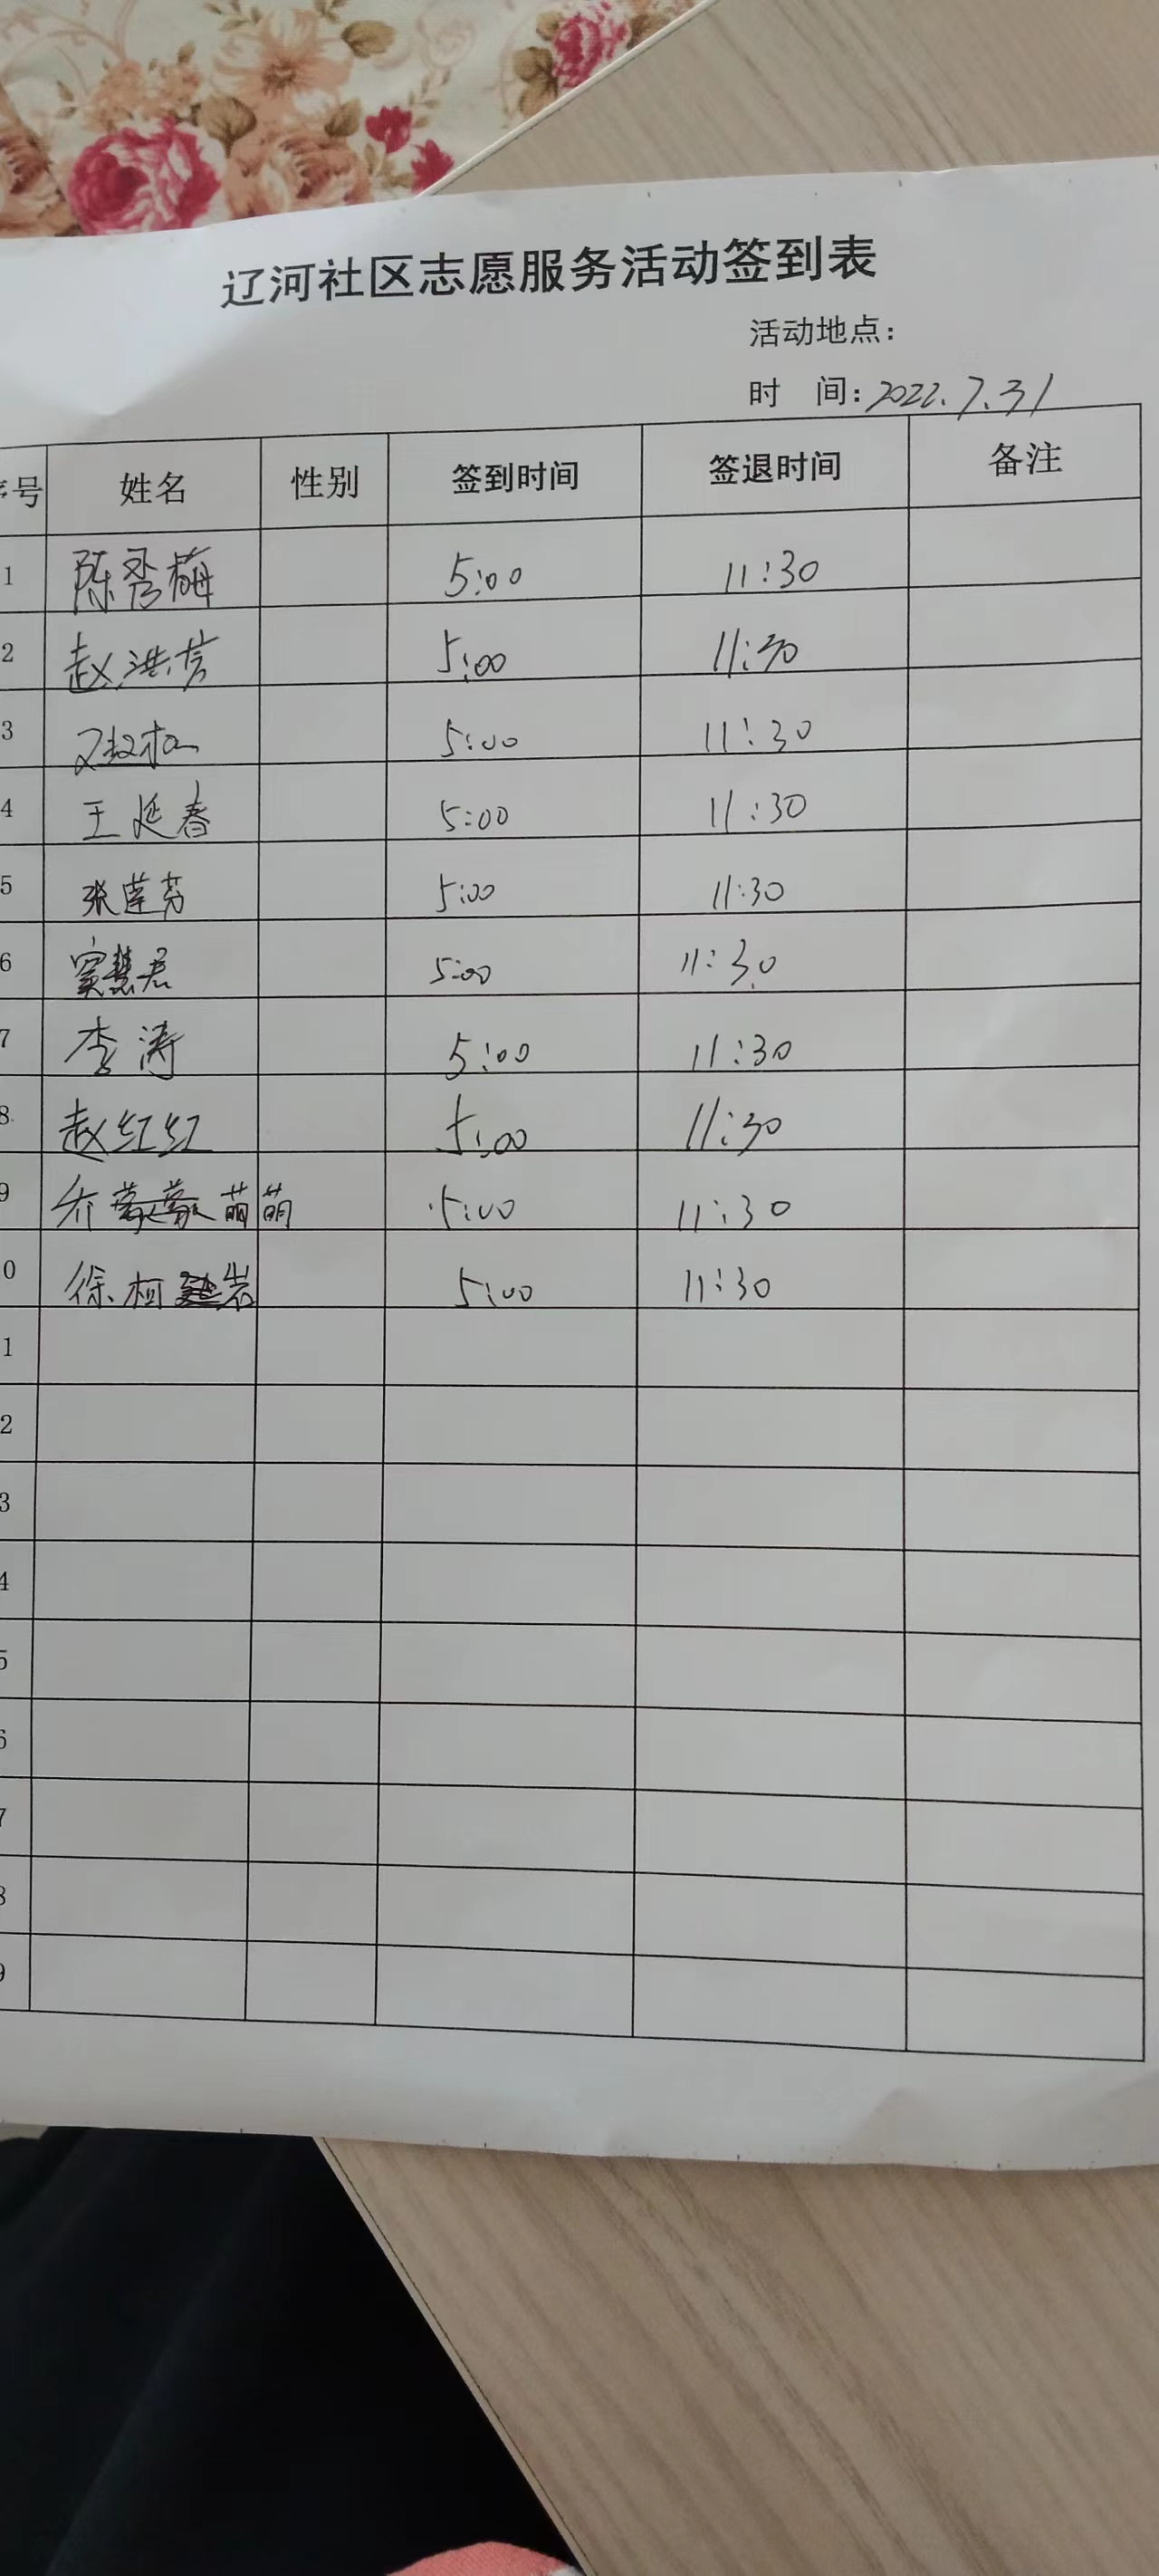 辽河社区志愿服务活动签到表
活动地点：
时 间：2022.7.31
序号 姓名 性别 签到时间 签退时间 备注
1 陈秀梅 5:00 11:30
2 赵洪信 5:00 11:30
3 5:00 11:30
4 王延春 5:00 11:30
5 张莲芬 5:00 11:30
6 窦慧君 5:00 11:30
7 李涛 5:00 11:30
8 赵红红 5:00 11:30
9 乔萌萌 5:00 11:30
0 徐柯岩 5:00 11:30
1
2
3
4
5
6
7
8
9